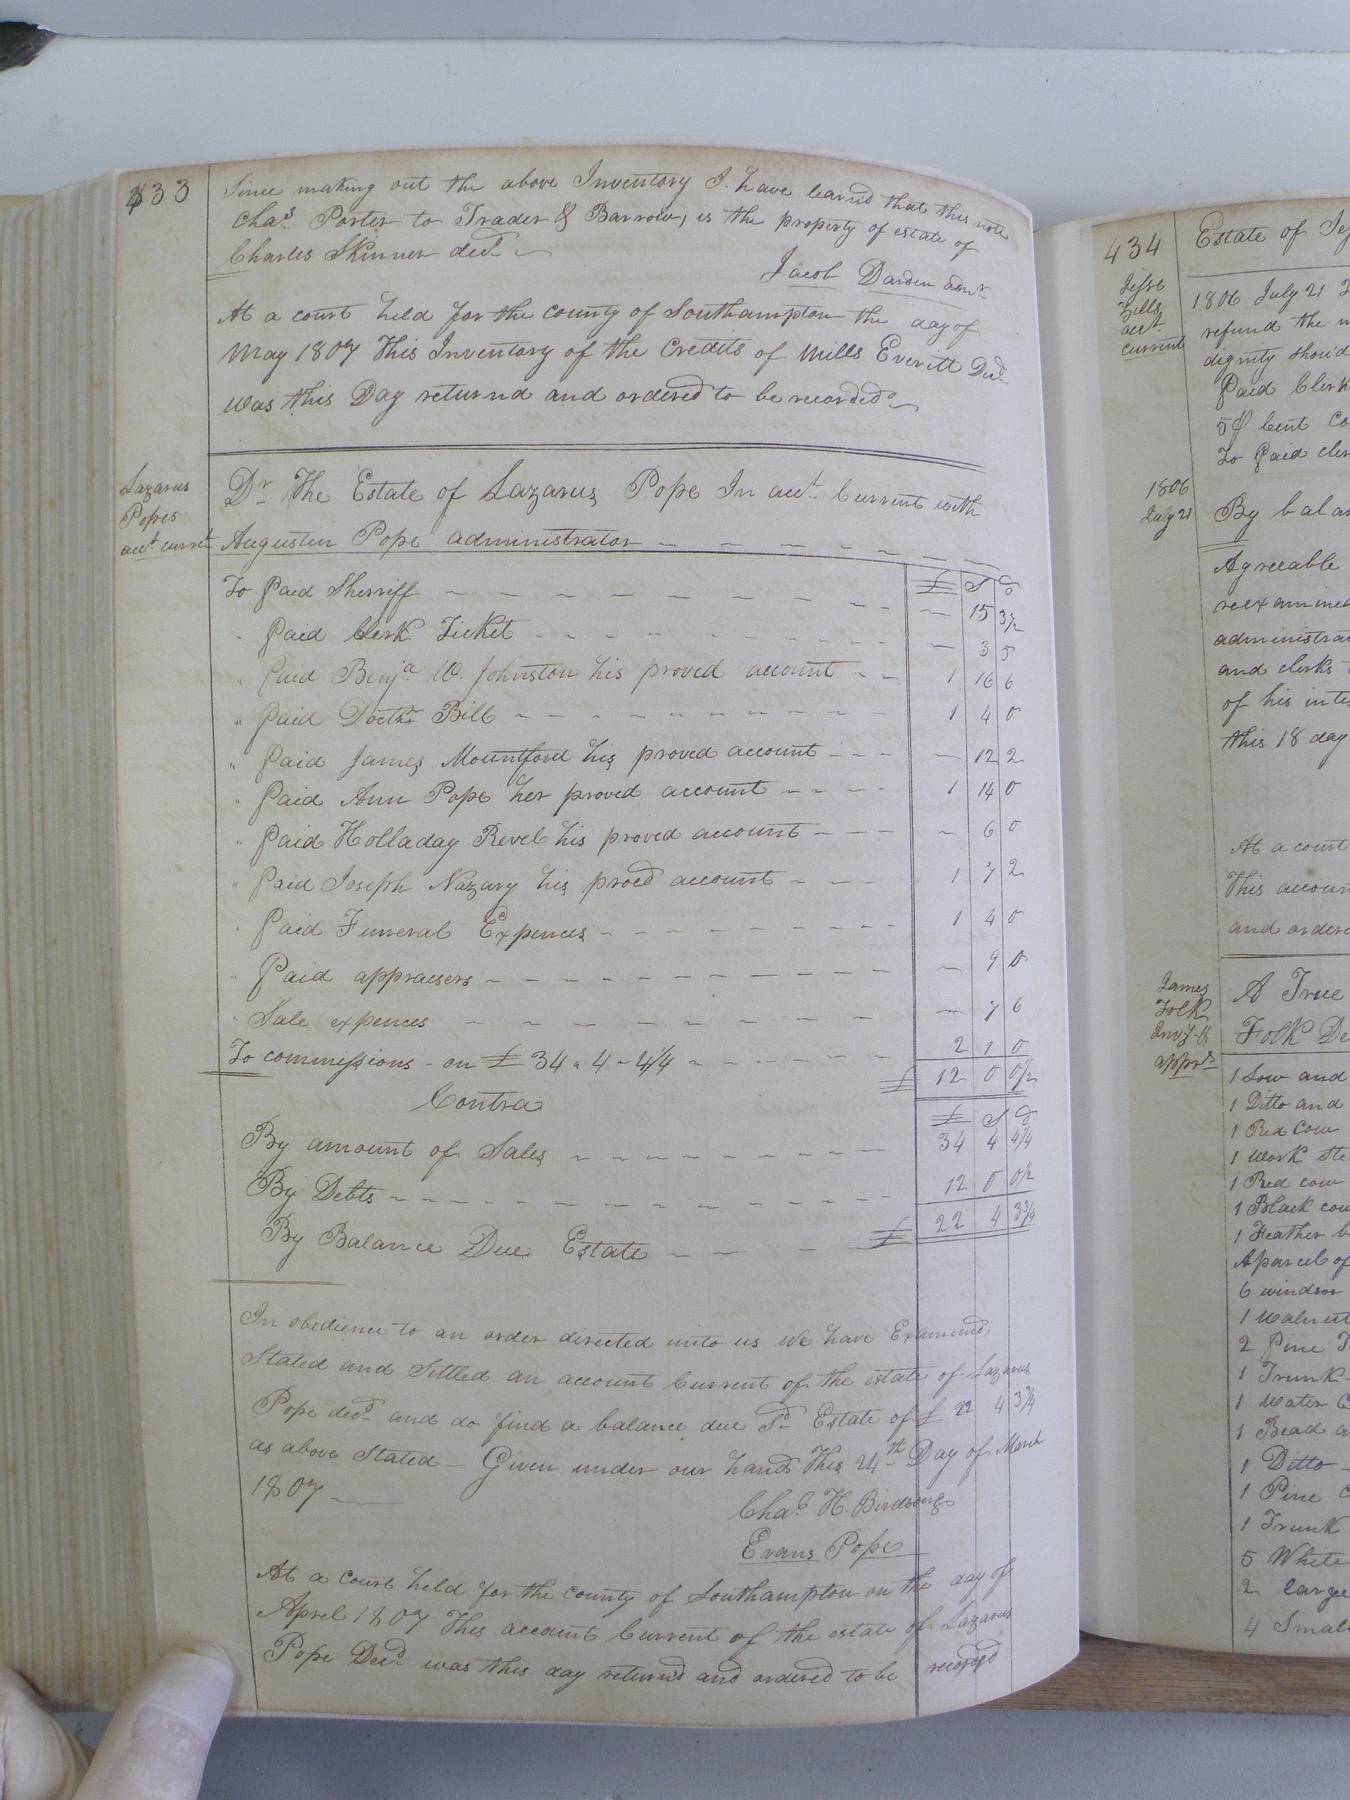 433
Since making out the above Inventory I have learnd that this note
Chas. Porter to Trader & Barrow, is the property of estate of
Charles Skinner decd.
Jacob Darden admr
At a court held for the county of Southampton the day of
May 1807 This Inventory of the Credits of Mills Everitt Decd
was this Day returnd and ordered to be recorded
Lazarus
Popes
acct. currt
Dr The Estate of Lazarus Pope In acct. Current with
Augustin Pope administrator
£ S D
To Paid Sherriff — 15 3½
" Paid Clerk Ticket — 3 5
" Paid Benja W. Johnston his proved account 1 16 6
" Paid Doctr Bill 1 4 0
" Paid James Mountford his proved account — 12 2
" Paid Ann Pope her proved account 1 14 0
" Paid Holladay Revel his proved account — 6 0
" Paid Joseph Nazary his proed account 1 7 2
" Paid Funeral Expences 1 4 0
" Paid appraesers — 9 0
" Sale expences — 7 6
To commissions on £ 34 " 4 " 4¼ 2 1 0
£ 12 0 0½
Contra £ S D
By amount of Sales 34 4 4¼
By Debts 12 0 0½
By Balance Due Estate £ 22 4 3¾
In obedience to an order derected unto us We have Examined,
Stated and Sittled an account Current of the estate of Lazarus
Pope decd. and do find a balance due Sd. Estate of £ 22 4 3¾
as above Stated — Given under our hands This 24th Day of March
1807
Chas. H. Birdsong
Evans Pope
At a court held for the county of Southampton on the day of
April 1807 This account Current of the estate of Lazarus
Pope Decd was this day returned and ordered to be recorded
434
Estate of
Jesse
Zills
acct.
current
1806 July 21
refund the
dignity shoud
Paid Clerk
5 Cent
To Paid
1806
July 21
By balan
Agreeable
reexamined
administra
and clerks
of his
this 18 day
At a court
This account
and ordere
James
Folk
Invy. &
appr.
A True
Folk De
1 Sow and
1 Ditto and
1 Red Cow
1 Work Ste
1 Red cow
1 Black cow
1 Feather b
A parcel of
6 windsor
1 Walnut
2 Pine
1 Trunk
1 Water
1 Bead
1 Ditto
1 Pine
1 Trunk
5 White
2 large
4 Small